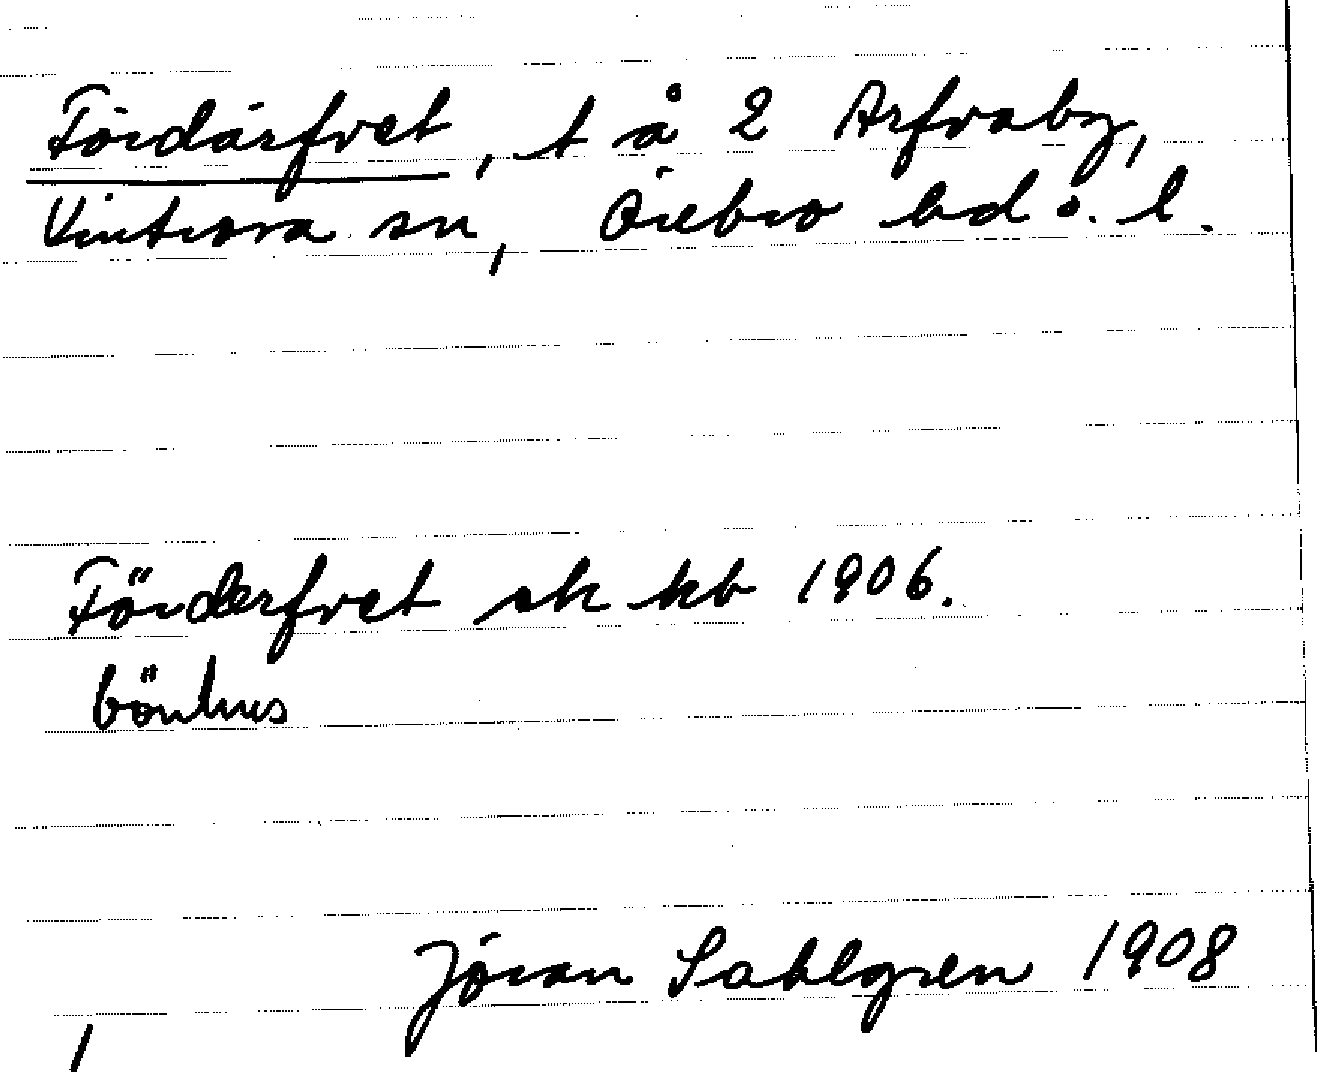 Fördärfvet, t å 2 Arfvaby,
Vintrosa sn, Örebro hd o. l.
Förderfvet ek kb 1906.
bönhus
Jöran Sahlgren 1908